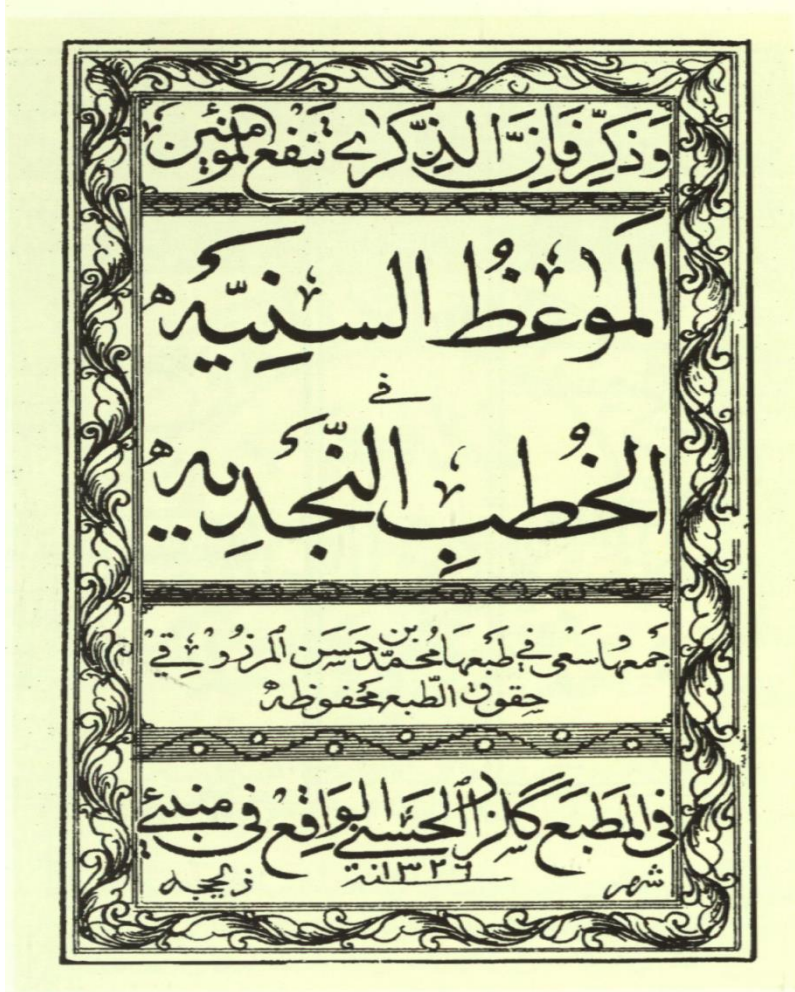 وَذَكِّرْ فَاِنَّ الذِّكْرٰى تَنْفَعُ الْمُؤْمِنِيْنَ
المَوٰعِظُ السنِيَّه
في
الخُطبِ النَّجْدِيه
جَمعها وسَعى في طبَعِهَا مُحَمَّد بن حَسَن المرزُوْقِيْ
حِقوق الطَّبعه مَحفوظه
في المَطبَع گلزار الحَسَنے الوَاقِع في مُنبَئے
شهر ذيحجه سنة ١٣٢٦